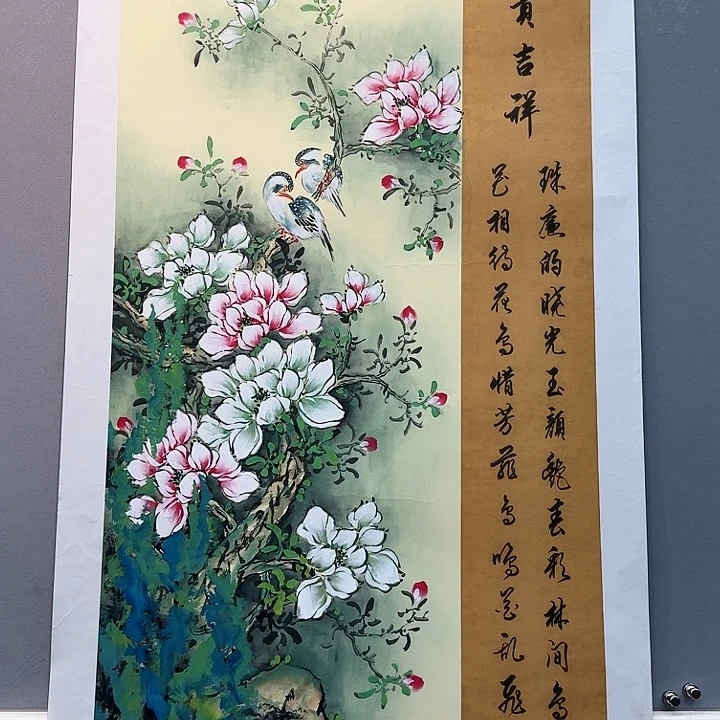 吉祥
珠廉的晓光玉颜艳春彩林间鸟
花相得花鸟惜芳菲鸟鸣花乱飛